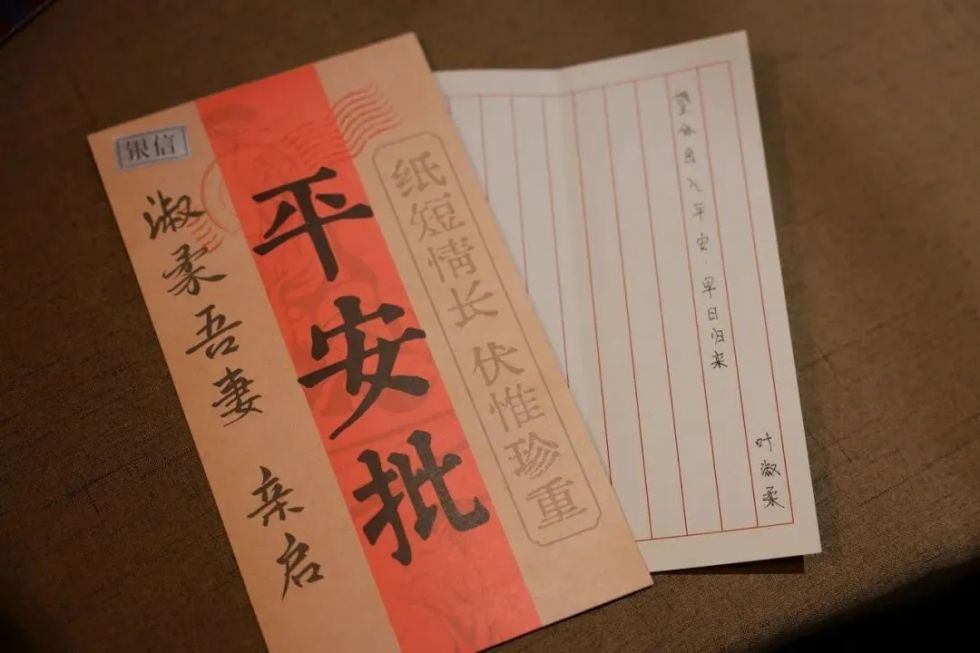 银信
淑柔吾妻 亲启
平安批
纸短情长 伏惟珍重
望你出入平安，早日归来
叶淑柔